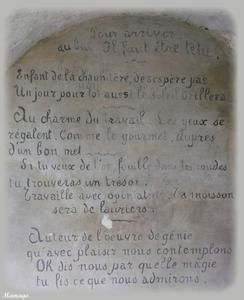 Pour arriver
au but Il faut être têtu
Enfant de la chaumière, désespère pas
Un jour pour toi aussi le soleil brillera
Au charme du travail Les yeux se
régalent. Comme le gourmet, auprès
d'un bon met
Si tu veux de l'or, fouille dans tes coudes
tu trouveras un trésor.
Travaille avec opiniâtreté, ta moisson
sera de lauriers.
Auteur de l'oeuvre de génie
qu'avec plaisir nous contemplons
OK dis nous par quelle magie
tu fis ce que nous admirons.
Mamago